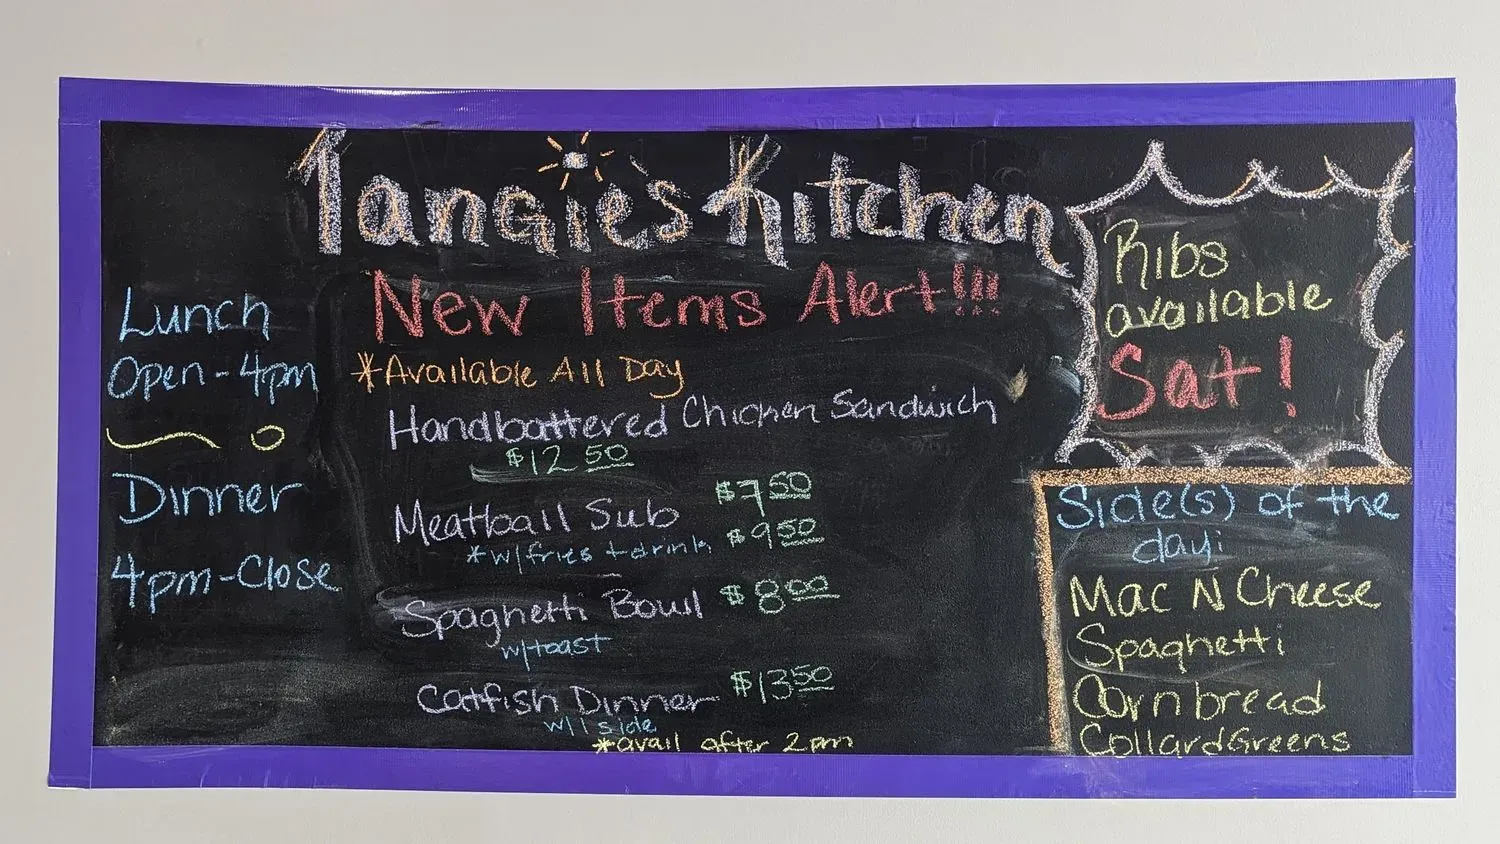 Tangie's Kitchen
New Items Alert!!!
Lunch
Open-4pm
Dinner
4pm-Close
*Available All Day
Handbattered Chicken Sandwich
$12.50
Meatball Sub $7.50
*w/fries + drink $9.50
Spaghetti Bowl $8.00
w/toast
Catfish Dinner $13.50
w/1 side
*avail after 2pm
Ribs
available
Sat!
Side(s) of the
day:
Mac N Cheese
Spaghetti
Cornbread
Collard Greens